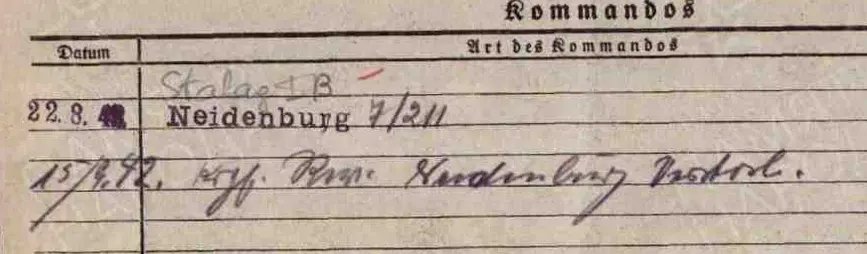 Kommandos
Datum Art des Kommandos
Stalag I B
22.8.42 Neidenburg 7/211
15/9.42. Krgf. Rev. Neidenburg verstorb.